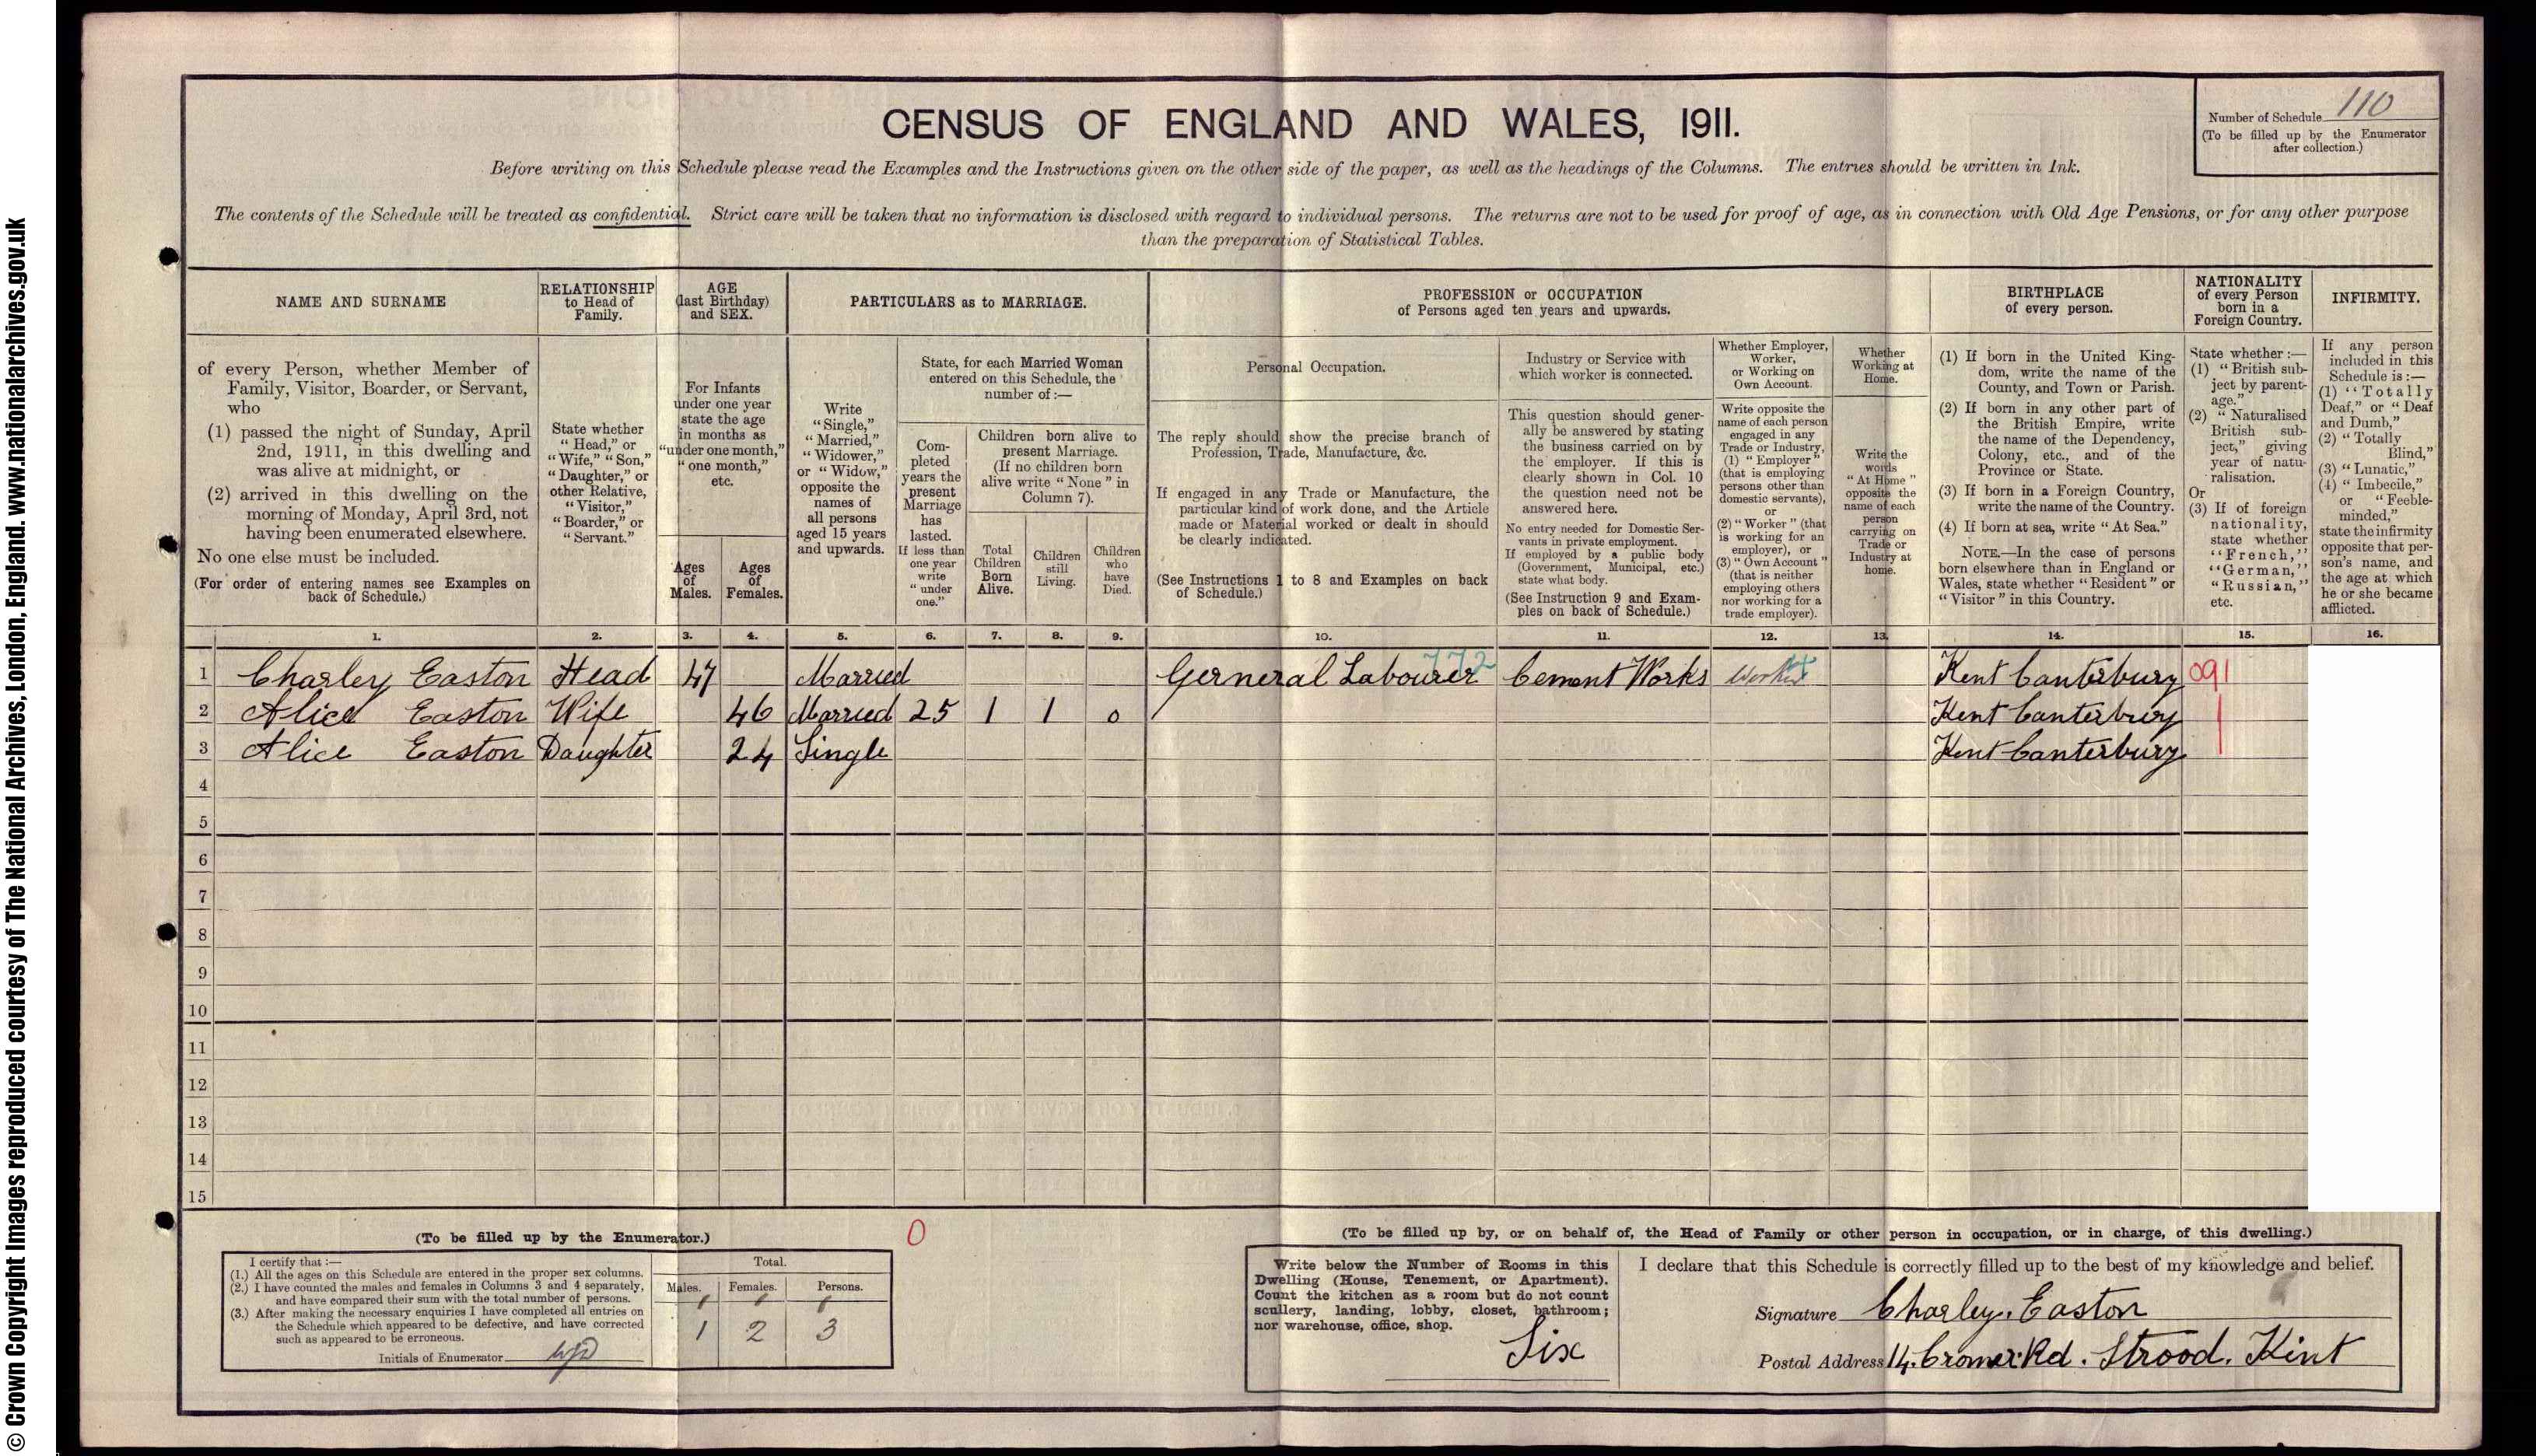 © Crown Copyright Images reproduced courtesy of The National Archives, London, England. www.nationalarchives.gov.uk
CENSUS OF ENGLAND AND WALES, 1911.
Number of Schedule 110
(To be filled up by the Enumerator
after collection.)
Before writing on this Schedule please read the Examples and the Instructions given on the other side of the paper, as well as the headings of the Columns. The entries should be written in Ink.
The contents of the Schedule will be treated as confidential. Strict care will be taken that no information is disclosed with regard to individual persons. The returns are not to be used for proof of age, as in connection with Old Age Pensions, or for any other purpose
than the preparation of Statistical Tables.
NAME AND SURNAME
of every Person, whether Member of
Family, Visitor, Boarder, or Servant,
who
(1) passed the night of Sunday, April
2nd, 1911, in this dwelling and
was alive at midnight, or
(2) arrived in this dwelling on the
morning of Monday, April 3rd, not
having been enumerated elsewhere.
No one else must be included.
(For order of entering names see Examples on
back of Schedule.)
RELATIONSHIP
to Head of
Family.
State whether
"Head," or
"Wife," "Son,"
"Daughter," or
other Relative,
"Visitor,"
"Boarder," or
"Servant."
AGE
(last Birthday)
and SEX.
For Infants
under one year
state the age
in months as
"under one month,"
"one month,"
etc.
Ages
of
Males.
Ages
of
Females.
PARTICULARS as to MARRIAGE.
Write
"Single,"
"Married,"
"Widower,"
or "Widow,"
opposite the
names of
all persons
aged 15 years
and upwards.
State, for each Married Woman
entered on this Schedule, the
number of :—
Com-
pleted
years the
present
Marriage
has
lasted.
If less than
one year
write
"under
one."
Children born alive to
present Marriage.
(If no children born
alive write "None" in
Column 7).
Total
Children
Born
Alive.
Children
still
Living.
Children
who
have
Died.
PROFESSION or OCCUPATION
of Persons aged ten years and upwards.
Personal Occupation.
The reply should show the precise branch of
Profession, Trade, Manufacture, &c.
If engaged in any Trade or Manufacture, the
particular kind of work done, and the Article
made or Material worked or dealt in should
be clearly indicated.
(See Instructions 1 to 8 and Examples on back
of Schedule.)
Industry or Service with
which worker is connected.
This question should gener-
ally be answered by stating
the business carried on by
the employer. If this is
clearly shown in Col. 10
the question need not be
answered here.
No entry needed for Domestic Ser-
vants in private employment.
If employed by a public body
(Government, Municipal, etc.)
state what body.
(See Instruction 9 and Exam-
ples on back of Schedule.)
Whether Employer,
Worker,
or Working on
Own Account.
Write opposite the
name of each person
engaged in any
Trade or Industry,
(1) "Employer"
(that is employing
persons other than
domestic servants),
or
(2) "Worker" (that
is working for an
employer), or
(3) "Own Account"
(that is neither
employing others
nor working for a
trade employer).
Whether
Working at
Home.
Write the
words
"At Home"
opposite the
name of each
person
carrying on
Trade or
Industry at
home.
BIRTHPLACE
of every person.
(1) If born in the United King-
dom, write the name of the
County, and Town or Parish.
(2) If born in any other part of
the British Empire, write
the name of the Dependency,
Colony, etc., and of the
Province or State.
(3) If born in a Foreign Country,
write the name of the Country.
(4) If born at sea, write "At Sea."
NOTE.—In the case of persons
born elsewhere than in England or
Wales, state whether "Resident" or
"Visitor" in this Country.
NATIONALITY
of every Person
born in a
Foreign Country.
State whether :—
(1) "British sub-
ject by parent-
age."
(2) "Naturalised
British sub-
ject," giving
year of natu-
ralisation.
Or
(3) If of foreign
nationality,
state whether
"French,"
"German,"
"Russian,"
etc.
INFIRMITY.
If any person
included in this
Schedule is :—
(1) "Totally
Deaf," or "Deaf
and Dumb,"
(2) "Totally
Blind,"
(3) "Lunatic,"
(4) "Imbecile,"
or "Feeble-
minded,"
state the infirmity
opposite that per-
son's name, and
the age at which
he or she became
afflicted.
1. 2. 3. 4. 5. 6. 7. 8. 9. 10. 11. 12. 13. 14. 15. 16.
1 Charley Easton Head 47 Married Gerneral Labourer 772 Cement Works Worker Kent Canterbury 091
2 Alice Easton Wife 46 Married 25 1 1 0 Kent Canterbury
3 Alice Easton Daughter 24 Single Kent Canterbury
4
5
6
7
8
9
10
11
12
13
14
15
(To be filled up by the Enumerator.)
0
I certify that :—
(1.) All the ages on this Schedule are entered in the proper sex columns.
(2.) I have counted the males and females in Columns 3 and 4 separately,
and have compared their sum with the total number of persons.
(3.) After making the necessary enquiries I have completed all entries on
the Schedule which appeared to be defective, and have corrected
such as appeared to be erroneous.
Initials of Enumerator
Total.
Males. Females. Persons.
1 2 3
(To be filled up by, or on behalf of, the Head of Family or other person in occupation, or in charge, of this dwelling.)
Write below the Number of Rooms in this
Dwelling (House, Tenement, or Apartment).
Count the kitchen as a room but do not count
scullery, landing, lobby, closet, bathroom;
nor warehouse, office, shop.
Six
I declare that this Schedule is correctly filled up to the best of my knowledge and belief.
Signature Charley. Easton
Postal Address 14. Cromer Rd. Strood. Kent